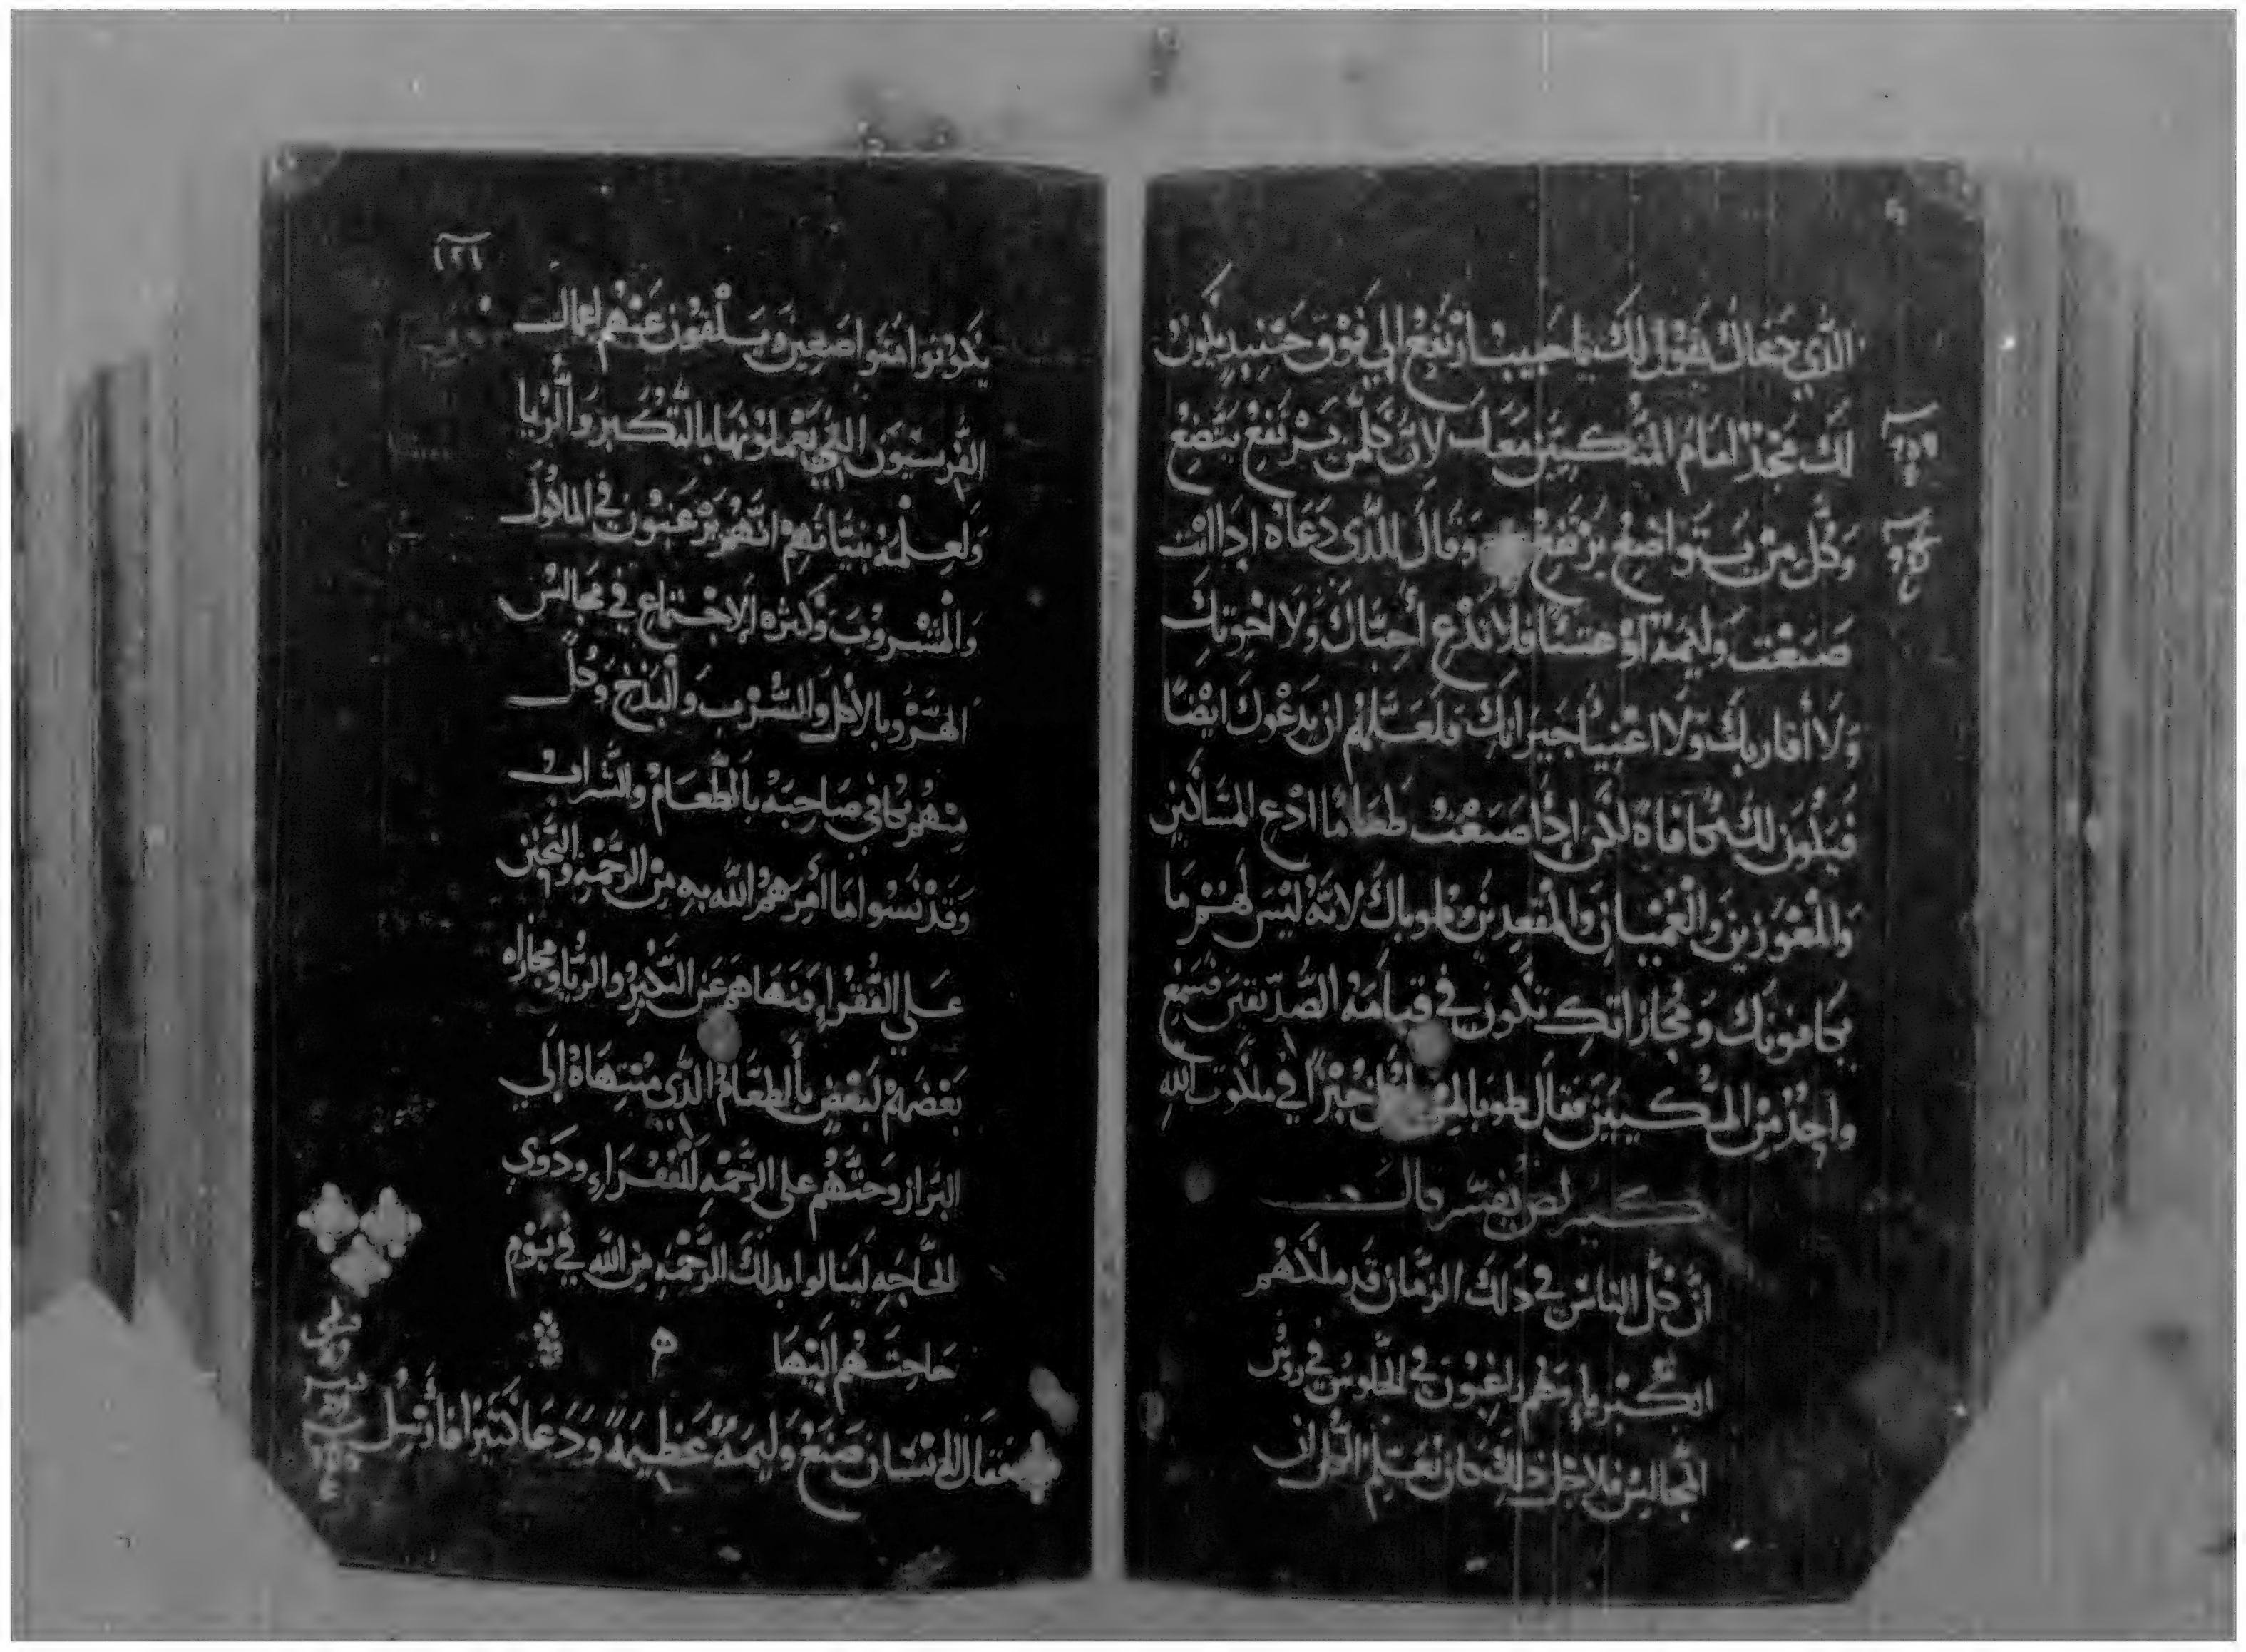 الذي دعاك يقول لك يا حبيب ارتفع الي فوق وحينيد يكون
لك مجد امام المتكيين معك لان كلمن يرتفع يتضع
وكل من يتواضع يرتفع وقال للذي دعاه اذا انت
صنعت وليمة او عشا فلا تدع أحباك ولا اخوتك
ولا أقاربك ولا اغنيا جيرانك فلعلهم ان يدعوك ايضا
فيكون لك مكافاة لكن إذا صنعت طعاما ادع المساكين
والمعوزين والعميان والمقعدين وطوباك لانه ليس لهم ما
يكافونك ومجازاتك تكون في قيامة الصديقين فسمع
واحد من المتكيين فقال طوبا لمن ياكل خبزا في ملكوت الله
كيرلص يفسر قال
ان كل الناس في ذلك الزمان قد ملكهم
الكبرياء وهم راغبون في الجلوس في روس
المجالس فلاجل ذلك كان يعلم الكل ان
يكونوا متواضعين ويلقون عنهم اعمال
الفريسيون التي يعملونها بالتكبر والريا
ولعلمه بنياتهم انهم يرغبون في الماكول
والمشروب وكثره الاجتماع في مجالس
الهزو بالأكل والشرب والبذخ وكل
منهم يكافي صاحبه بالطعام والشراب
وقد نسوا ما أمرهم الله به من الرحمه والتحنن
علي الفقراء فنهاهم عن التكبر والريا ومجازاه
بعضهم لبعض بالطعام الذي منتهاه إلي
البراز وحثهم علي الرحمه للفقراء ودوي
الحاجه لينالوا بدلك الرحمه من الله في يوم
حاجتهم اليها
فقال له انسان صنع وليمة عظيمة ودعا كثيرا فأرسل